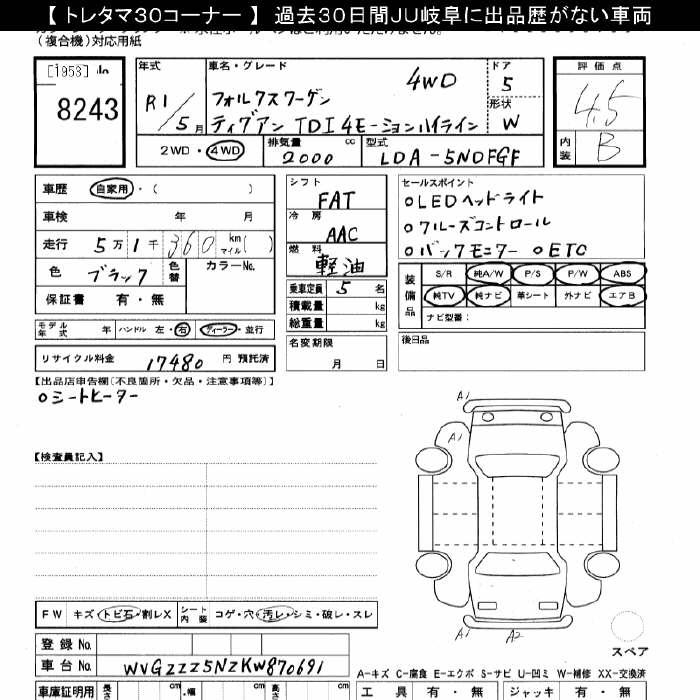 【 トレタマ30コーナー 】 過去30日間JU岐阜に出品歴がない車両
(複合機)対応用紙
[1953]
8243
年式 車名・グレード ドア 評価点
R1/5月 フォルクスワーゲン 4WD 5 4.5
ティグアン TDI 4モーションハイライン 形状 W
2WD・4WD 排気量 2000 cc 型式 LDA-5NDFGF 内装 B
車歴 自家用・( )
車検 年 月
走行 5万1千360 km マイル( )
色 ブラック 色替 カラーNo.
保証書 有・無
シフト FAT
冷房 AAC
燃料 軽油
乗車定員 5 名
積載量 kg
総重量 kg
セールスポイント
○LEDヘッドライト
○クルーズコントロール
○バックモニター ○ETC
装備品 S/R 純A/W P/S P/W ABS
純TV 純ナビ 革シート 外ナビ エアB
ナビ型番:
モデル年式 年 ハンドル 左・右 ディーラー・並行
リサイクル料金 17480 円 預託済
名変期限
月 日
後日品
【出品店申告欄(不良箇所・欠品・注意事項等)】
○シートヒーター
【検査員記入】
A1
A1
A1 A2
スペア
FW キズ・トビ石・割レX シート内装 コゲ・穴・汚レ・シミ・破レ・スレ
登録 No.
車台 No. WVGZZZ5NZKW870691
A-キズ C-腐食 E-エクボ S-サビ U-凹ミ W-補修 XX-交換済
車庫証明用 長さ cm 幅 cm 高さ cm 工具 有・無 ジャッキ 有・無